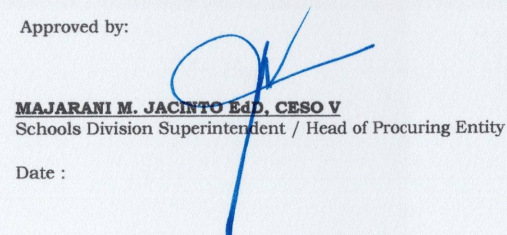 Approved by:
MAJARANI M. JACINTO EdD, CESO V
Schools Division Superintendent / Head of Procuring Entity
Date :